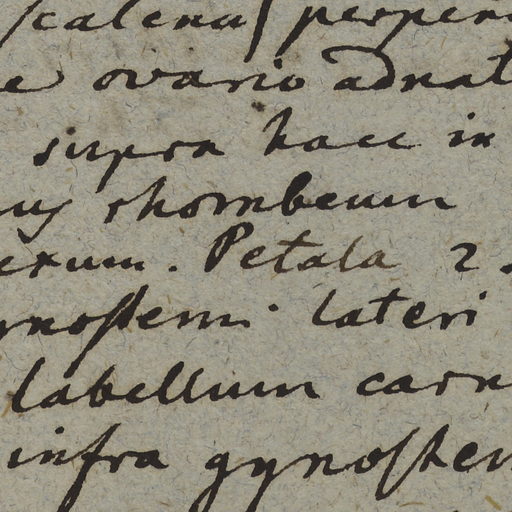 scalena perpen
e ovario adnat
supra haec in
us rhombeum
erum. Petala 2.
gynostemi lateri
labellum carn
infra gynostem